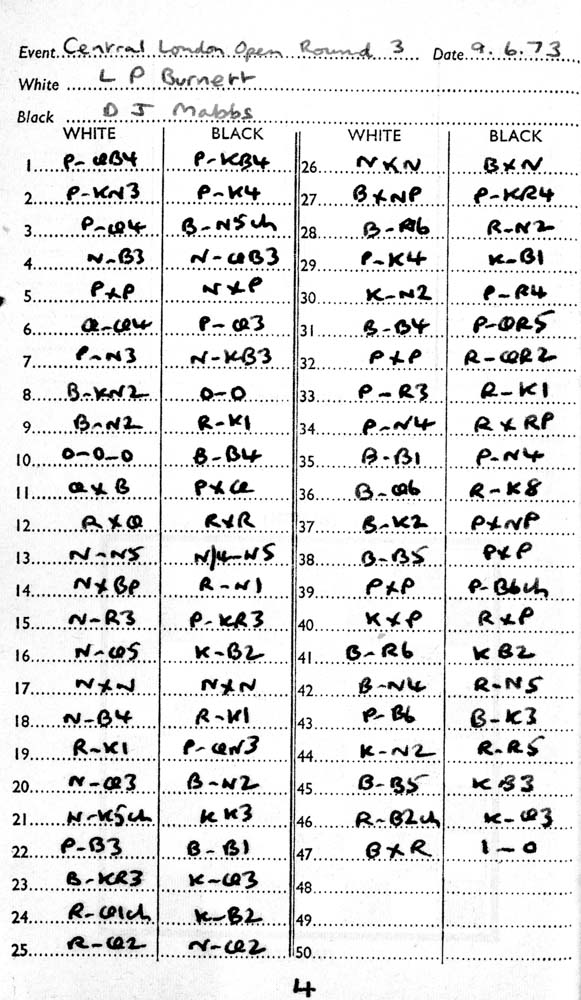 Event Central London Open Round 3 Date 9.6.73
White L P Burnett
Black D J Mabbs
WHITE BLACK
1 P-QB4 P-KB4
2 P-KN3 P-K4
3 P-Q4 B-N5ch
4 N-B3 N-QB3
5 PxP NxP
6 Q-Q4 P-Q3
7 P-N3 N-KB3
8 B-KN2 0-0
9 B-N2 R-K1
10 0-0-0 B-B4
11 QxB PxQ
12 RxQ RxR
13 N-N5 N/4-N5
14 NxBP R-N1
15 N-R3 P-KR3
16 N-Q5 K-B2
17 NxN NxN
18 N-B4 R-K1
19 R-K1 P-QN3
20 N-Q3 B-N2
21 N-K5ch KK3
22 P-B3 B-B1
23 B-KR3 K-Q3
24 R-Q1ch K-B2
25 R-Q2 N-Q2
WHITE BLACK
26 NxN BxN
27 BxNP P-KR4
28 B-R6 R-N2
29 P-K4 K-B1
30 K-N2 P-R4
31 B-B4 P-QR5
32 PxP R-QR2
33 P-R3 R-K1
34 P-N4 RxRP
35 B-B1 P-N4
36 B-Q6 R-K8
37 B-K2 PxNP
38 B-B5 PxP
39 PxP P-B6ch
40 KxP RxP
41 B-R6 KB2
42 B-N4 R-N5
43 P-B6 B-K3
44 K-N2 R-R5
45 B-B5 KB3
46 R-B2ch K-Q3
47 BxR 1-0
48
49
50
4